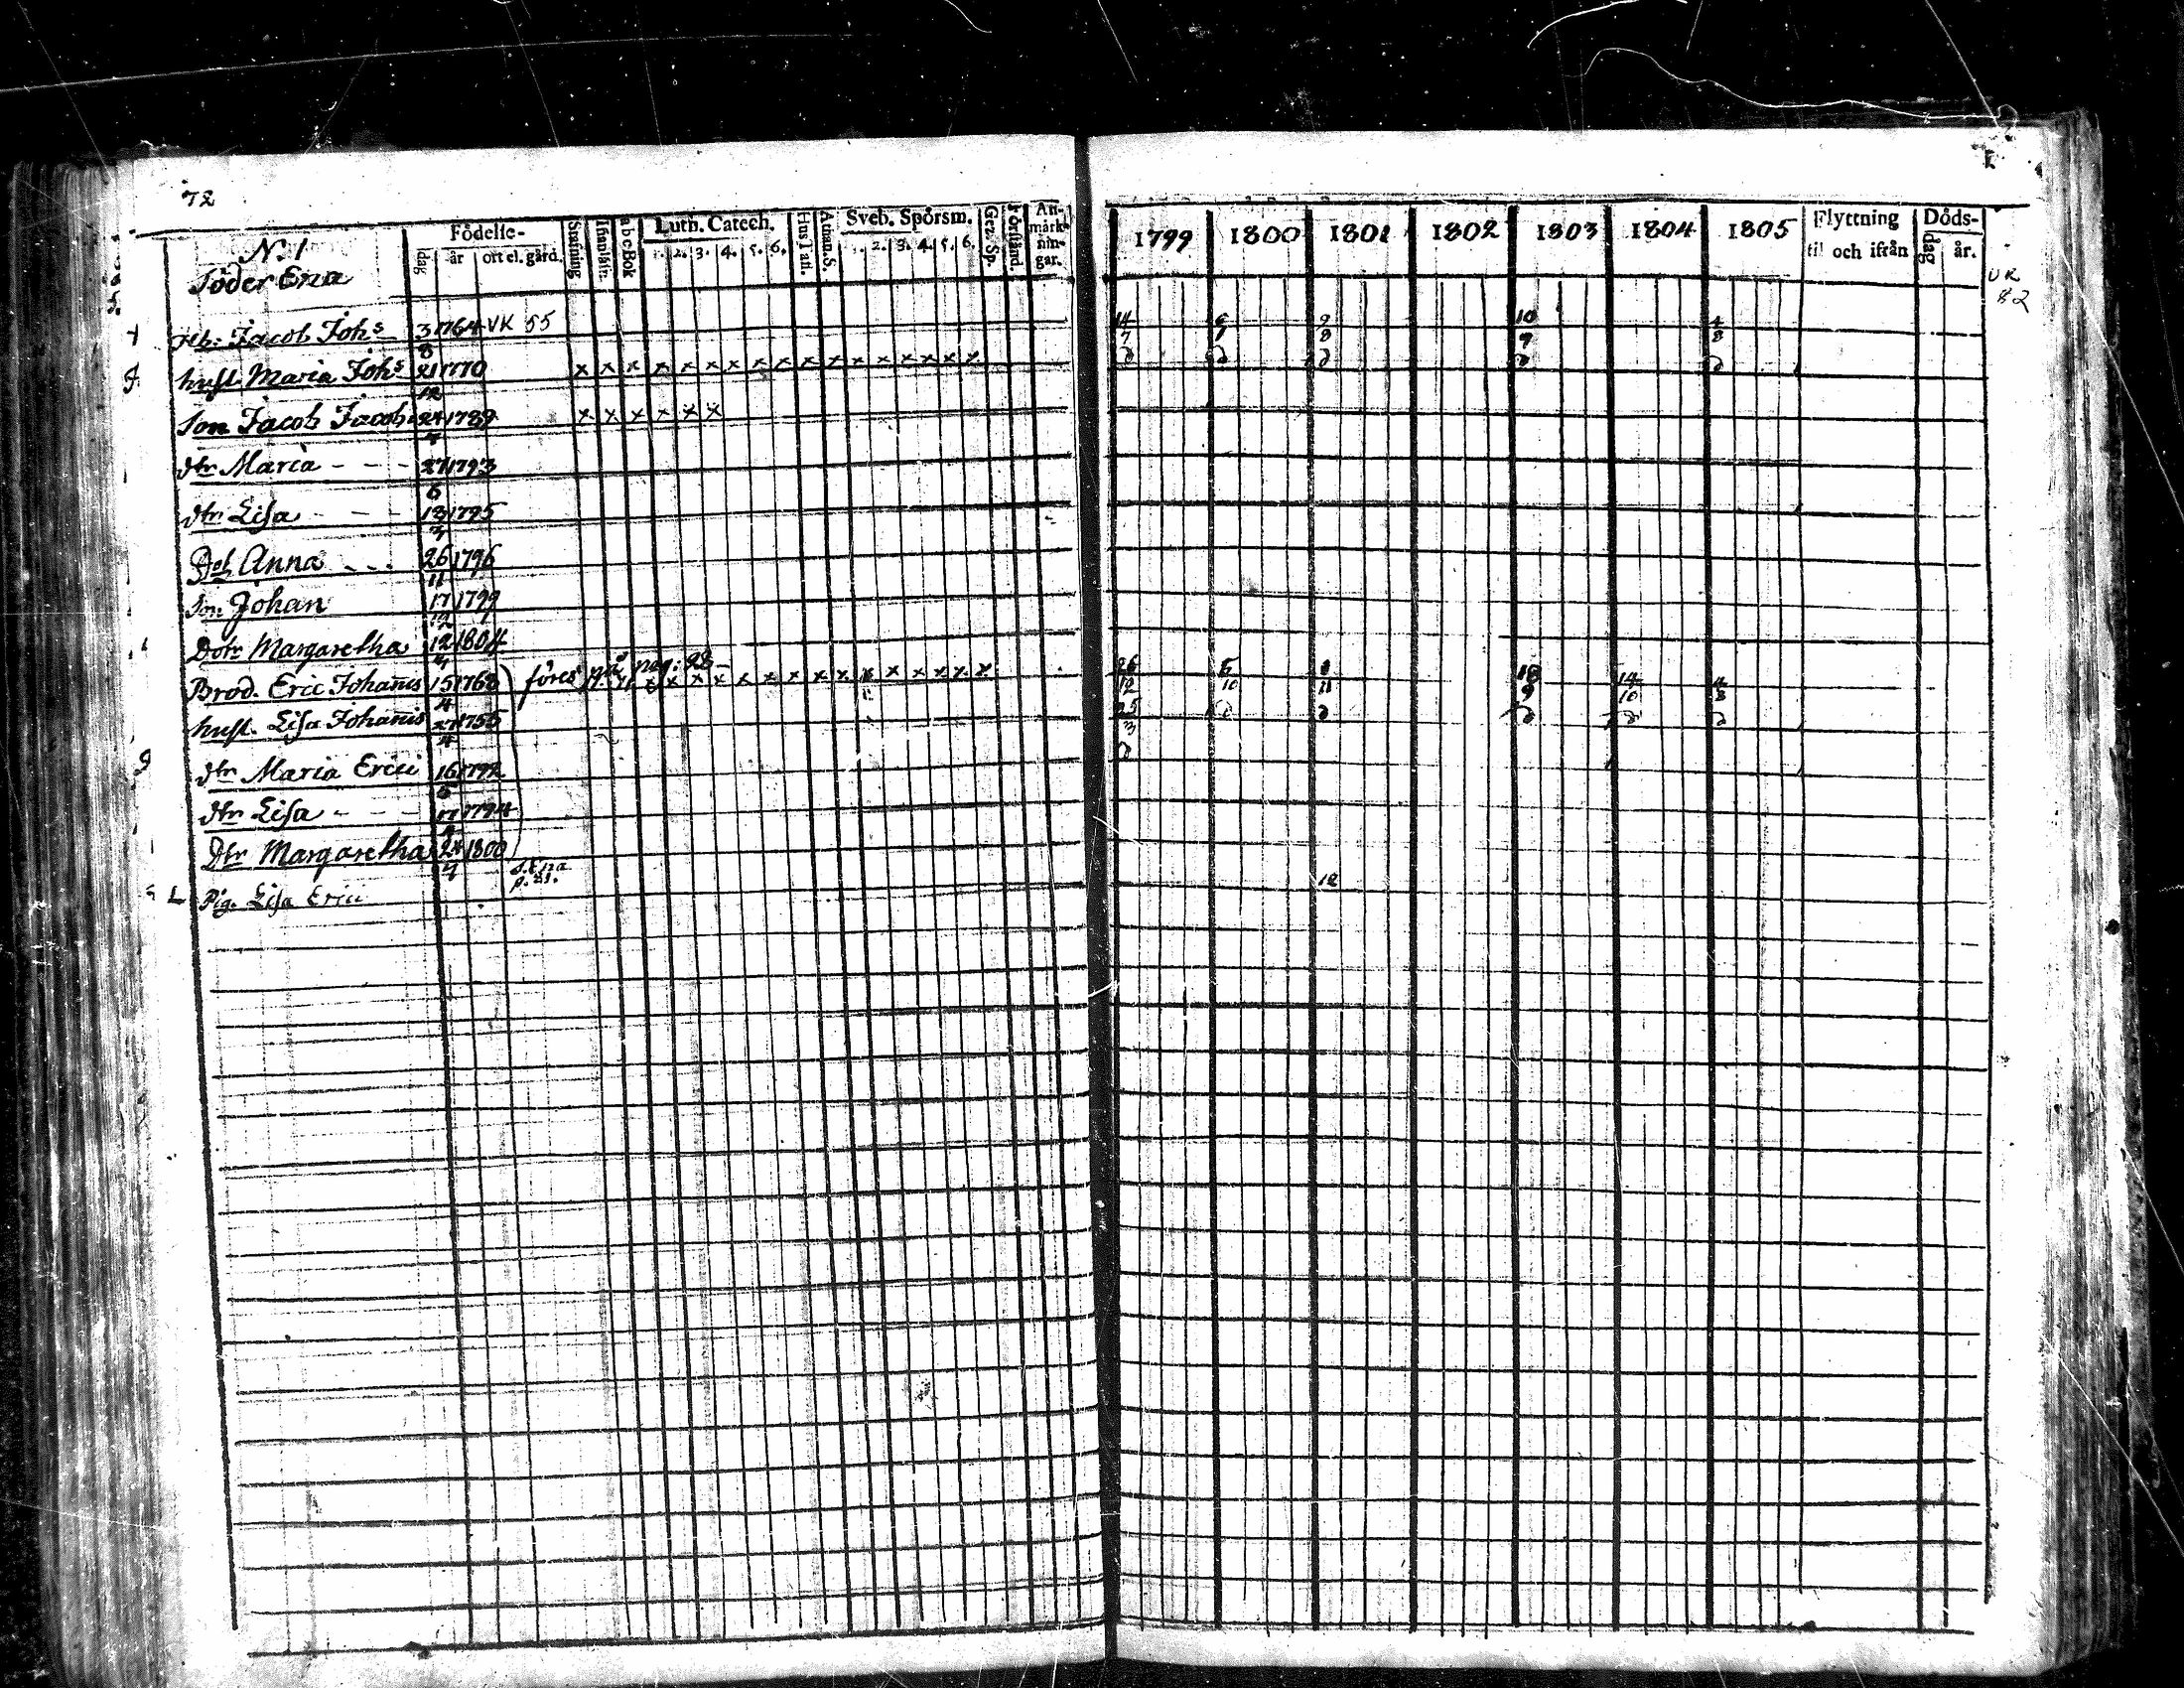 72
N. 1
Söder Ena
Födelse-
dag år ort el. gård.
Stafning
Innanläsn.
abcBok
Luth. Catech.
1. 2. 3. 4. 5. 6.
Hus Tafl.
Athan. S.
Sveb. Spörsm.
1. 2. 3. 4. 5. 6.
Gez. Sp.
Förstånd.
An-
märk-
nin-
gar.
1799 1800 1801 1802 1803 1804 1805
Flyttning
til och ifrån
Döds-
dag år.
VK
82
Jacob Johs 3/8 1764 VK 55 14/7 9/8 10/9 4/8
hust. Maria Johs 21/12 1770 x x x x x x x x x x x x x x x x x
Son Jacob Jacobs 24/7 1789 x x x x x x
dtr Maria - - - 27/6 1793
dtr Lisa - - - 13/7 1795
Dotr Anna - - - 26/11 1796
Son Johan 17/12 1799
Dotr Margaretha 12/4 1804
föres på pag: 28
Brod. Eric Johannis 15/4 1768 x x x x x x x x x x x x x x x 26/12 6/10 8/11 18/9 14/10 4/8
hust. Lisa Johannis 27/4 1755 25/3
dtr Maria Erici 16/6 1792
dtr Lisa - - - 17/4 1794
Dtr Margaretha 24/4 1800
S. Ena
p. 21.
Pig. Lisa Erici 12